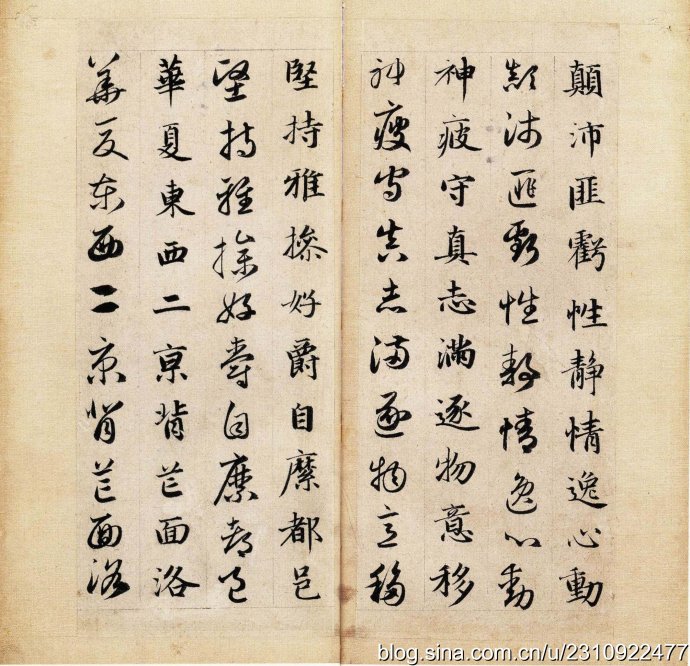 顛沛匪虧性靜情逸心動
顛沛匪虧性靜情逸心動
神疲守真志滿逐物意移
神疲守真志滿逐物意移
堅持雅操好爵自縻都邑
堅持雅操好爵自縻都邑
華夏東西二京背芒面洛
華夏東西二京背芒面洛
blog.sina.com.cn/u/2310922477